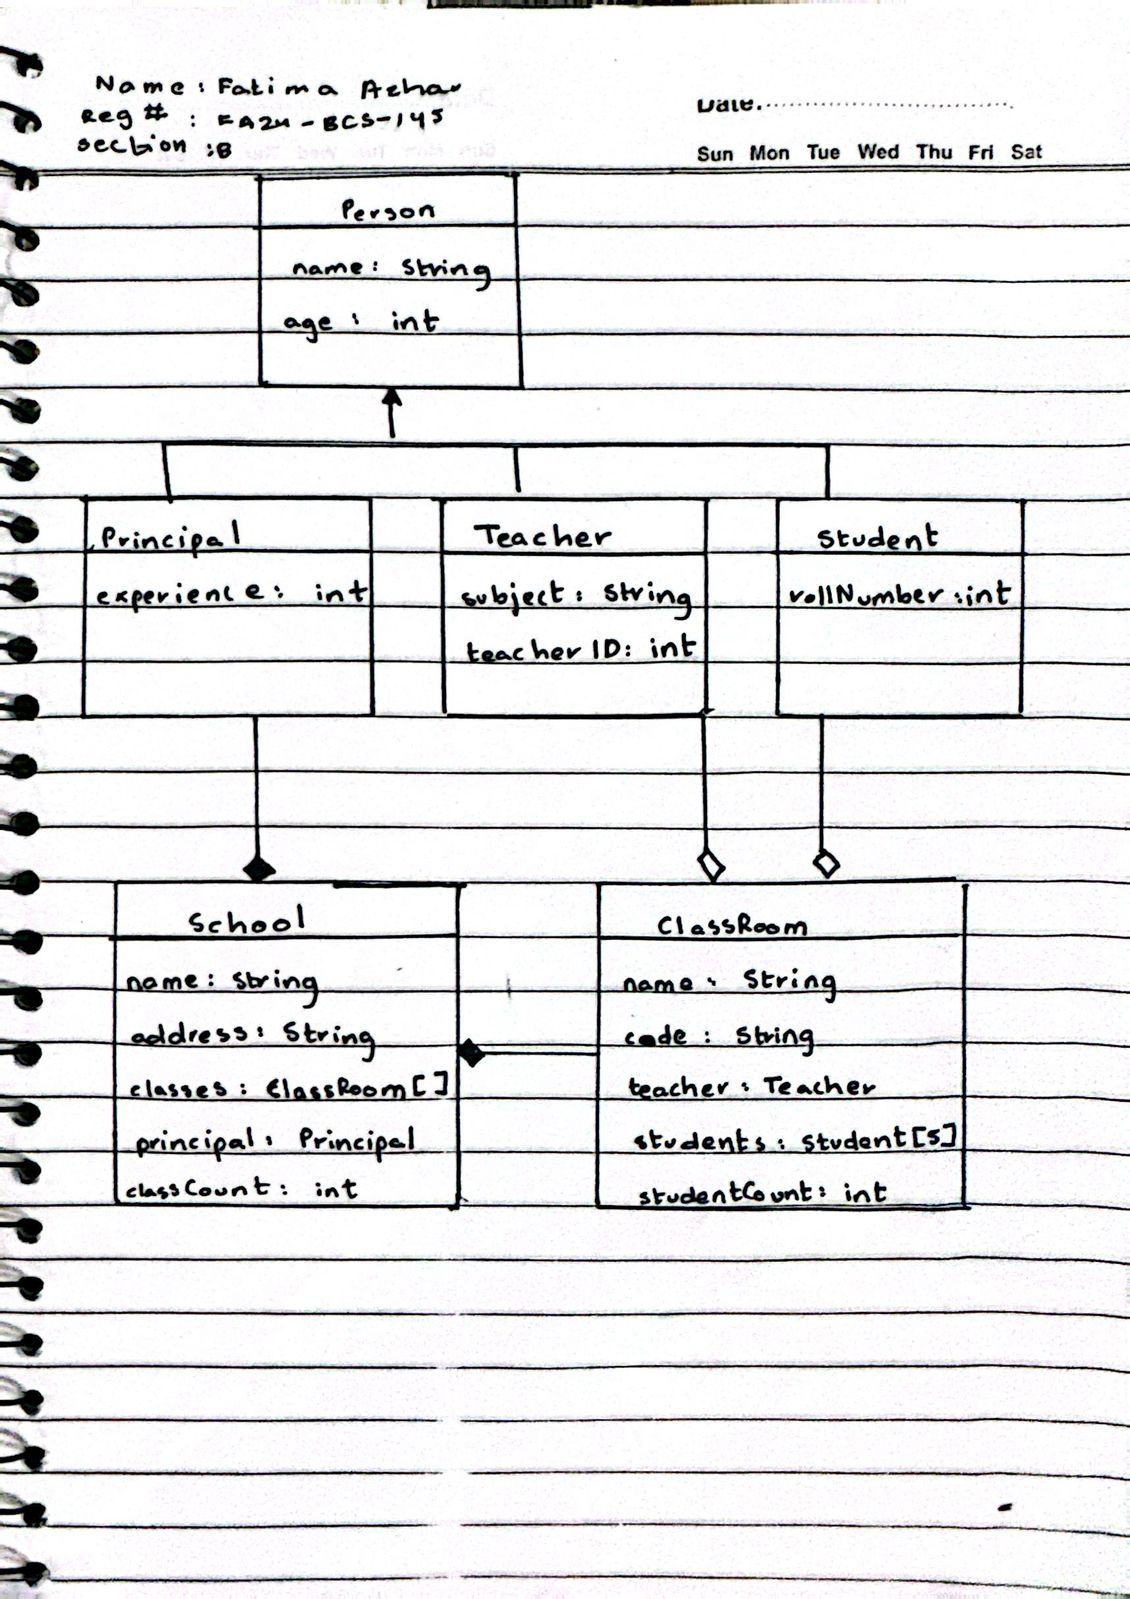 Name: Fatima Azhar
Reg # : FA24-BCS-145
section :B
Date.
Sun Mon Tue Wed Thu Fri Sat
Person
name: String
age: int
Principal
experience: int
Teacher
subject: String
teacherID: int
Student
rollNumber:int
School
name: String
address: String
classes: ClassRoom[]
principal: Principal
classCount: int
ClassRoom
name: String
code: String
teacher: Teacher
students: Student[5]
studentCount: int